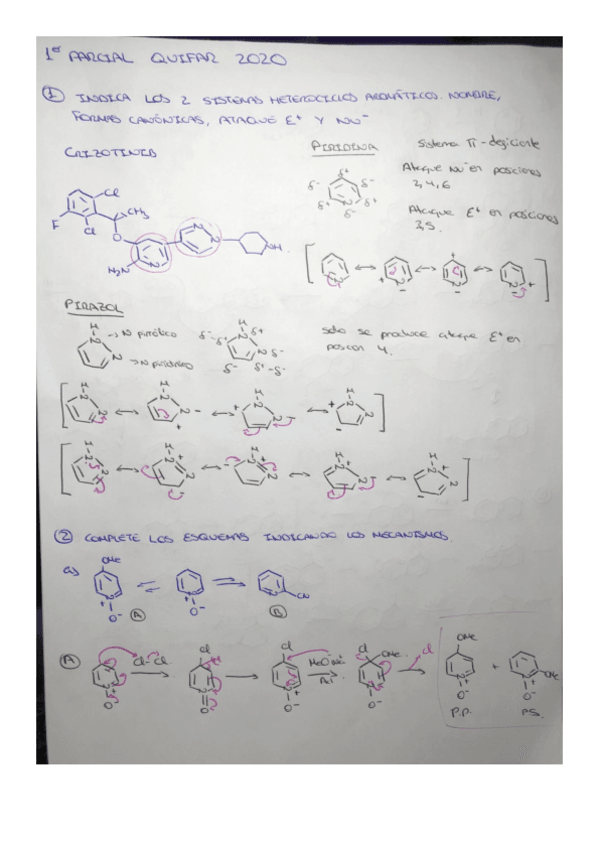 1er PARCIAL QUIFAR 2020
① INDICA LOS 2 SISTEMAS HETEROCICLOS AROMÁTICOS. NOMBRE,
FORMAS CANÓNICAS, ATAQUE E+ Y NU-
CRIZOTINIB
PIRIDINA
Sistema π-deficiente
Ataque Nu- en posiciones
2,4,6
Ataque E+ en posiciones
3,5.
Cl
CH3
F
Cl
O
H2N
N
N
N
NH
PIRAZOL
→ N pirrólico
→ N piridínico
Solo se produce ataque E+ en
posición 4.
② COMPLETE LOS ESQUEMAS INDICANDO LOS MECANISMOS.
a)
OMe
N+
O-
A
N+
O-
N
CN
B
A
Cl-Cl
Cl
Cl
MeO-Na+
Cl
OMe
Cl
OMe
OMe
P.P.
+
P.S.